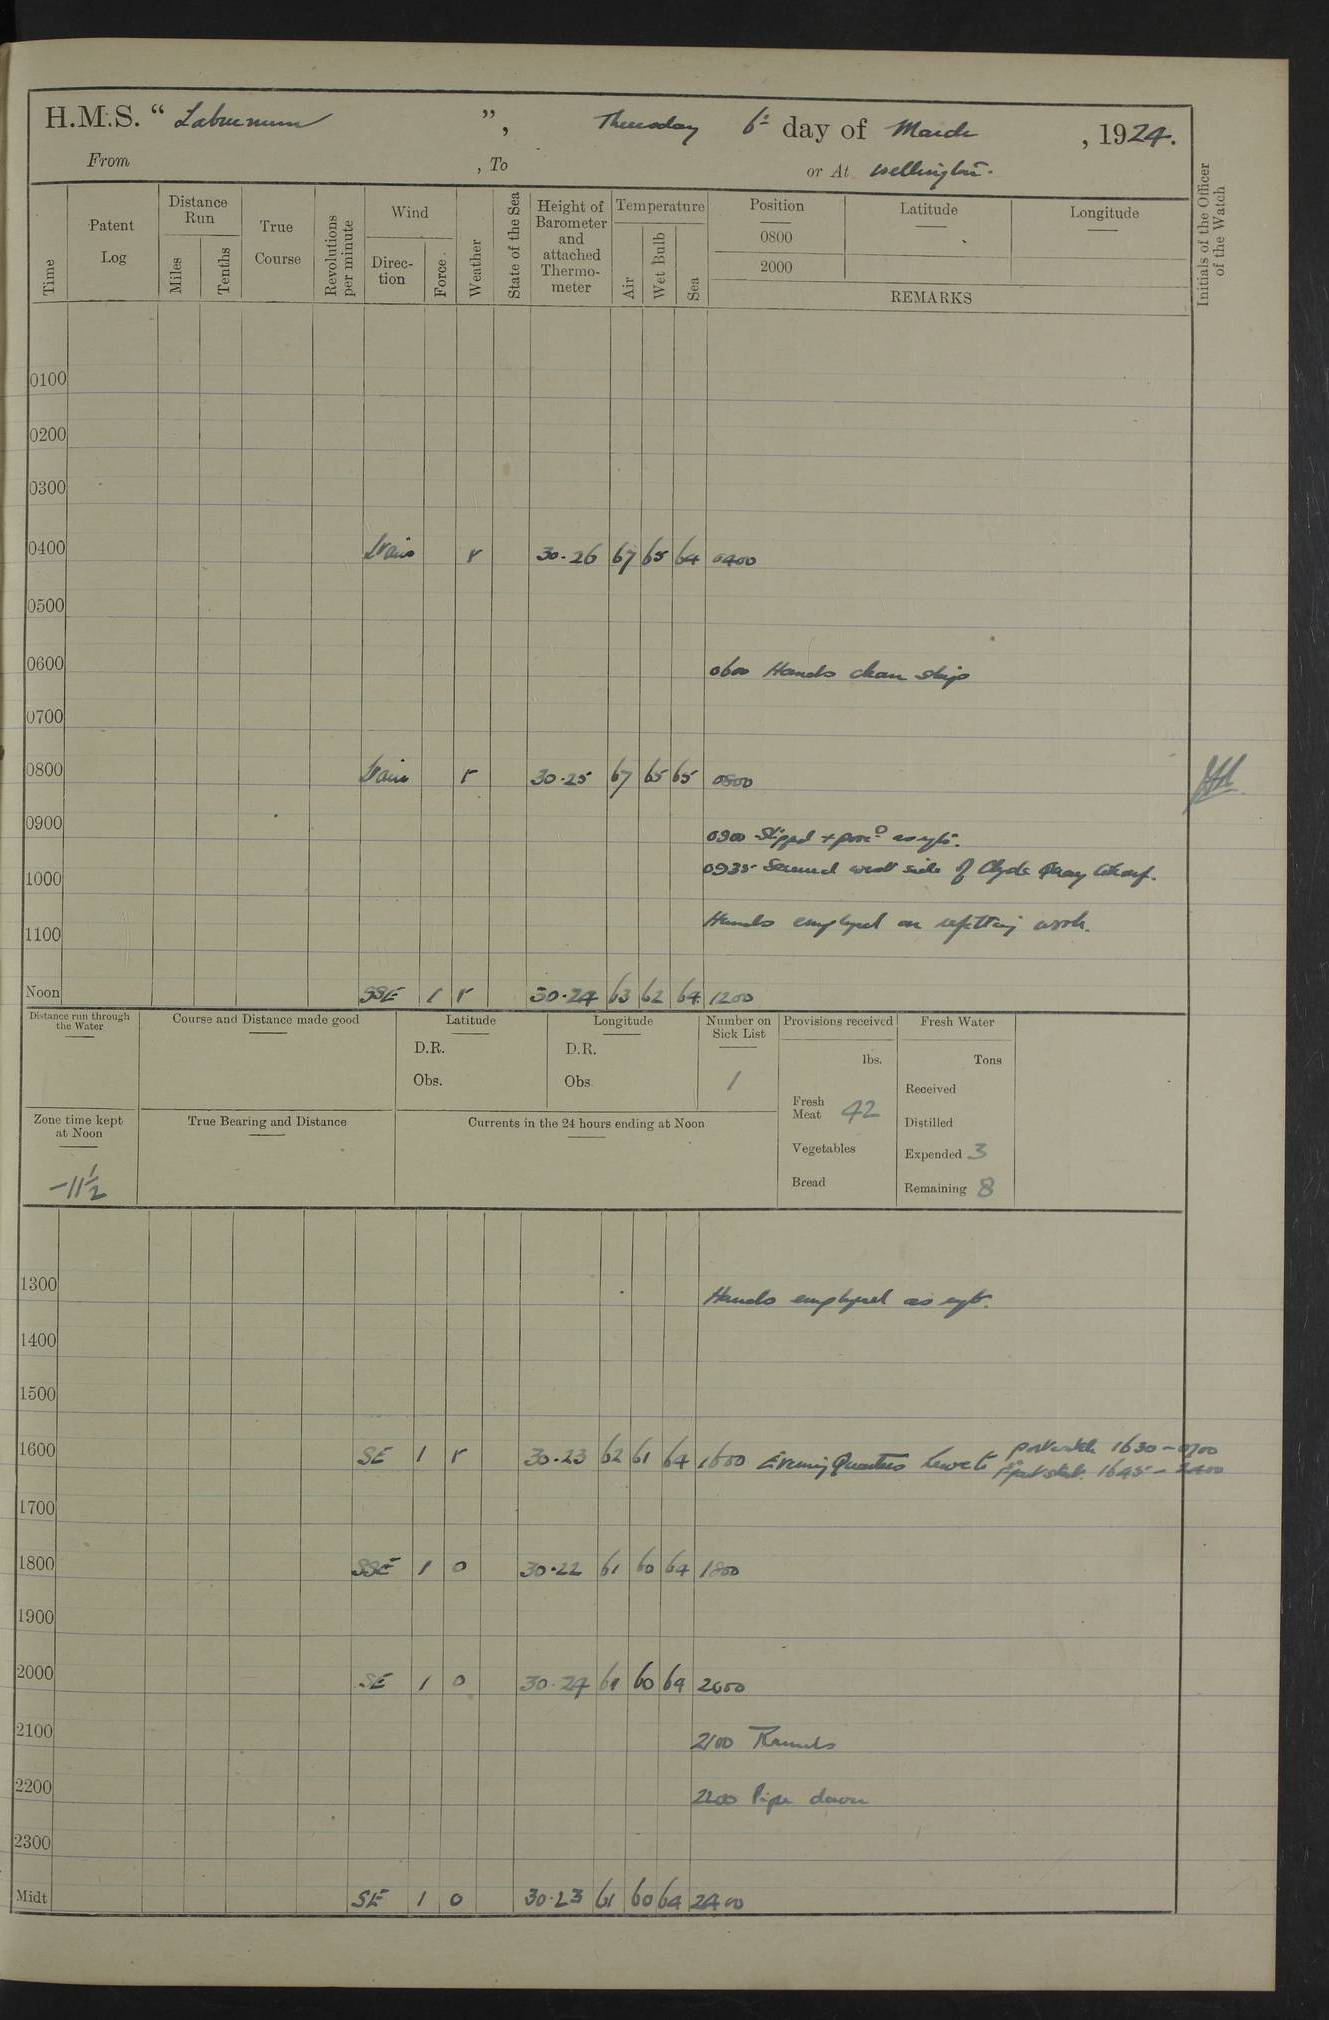 H.M.S. “ Laburnum ”, Thursday 6th day of March , 1924.
From , To or At Wellington.
Time Patent Log Distance Run Miles Tenths True Course Revolutions per minute Wind Direc-tion Force Weather State of the Sea Height of Barometer and attached Thermo-meter Temperature Air Wet Bulb Sea Position 0800 2000 Latitude Longitude
REMARKS
Initials of the Officer of the Watch
0100
0200
0300
0400 Vairs r 30.26 67 65 64 0400
0500
0600 0600 Hands clean ship
0700
0800 r 30.25 67 65 65 0800
0900 0900 Slipped + proc.d as reqte.
0935 Secured west side of Clyde Quay Wharf.
1000
Hands employed on refitting work.
1100
Noon SSE 1 r 30.24 63 62 64 1200
Distance run through the Water Course and Distance made good Latitude Longitude Number on Sick List Provisions received Fresh Water
D.R. D.R. lbs. Tons
Obs. Obs. 1 Received
Fresh Meat 42 Distilled
Zone time kept at Noon True Bearing and Distance Currents in the 24 hours ending at Noon
Vegetables Expended 3
-11½ Bread Remaining 8
1300 Hands employed as reqte.
1400
1500
1600 SE 1 r 30.23 62 61 64 1600 Evening Quarters Leave to port watch 1630 - 0700
1645 - 2400
1700
1800 SSE 1 o 30.22 61 60 64 1800
1900
2000 SE 1 o 30.24 61 60 64 2000
2100 2100 Rounds
2200 2200 Pipe down
2300
Midt SE 1 o 30.23 61 60 64 2400